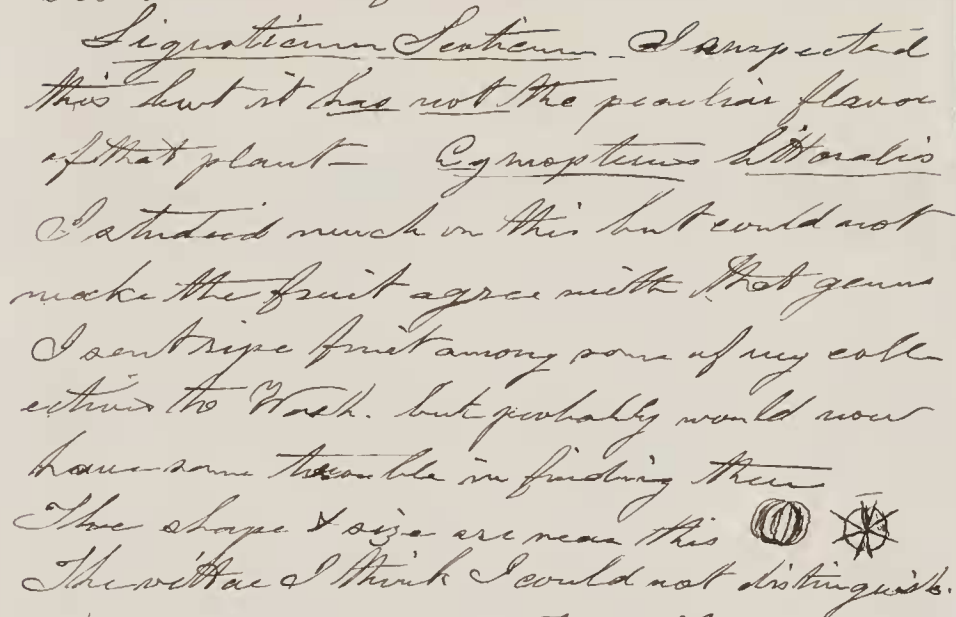 Liguoticum Scoticum I suspected
this but it has not the peculiar flavor
of that plant— Cymopterus littoralis
I studied much on this but could not
make the fruit agree with that genus
I sent ripe fruit among some of my coll
ections to Wash. but probably would now
have some trouble in finding them
The shape & size are near this
The vittae I think I could not distinguish.